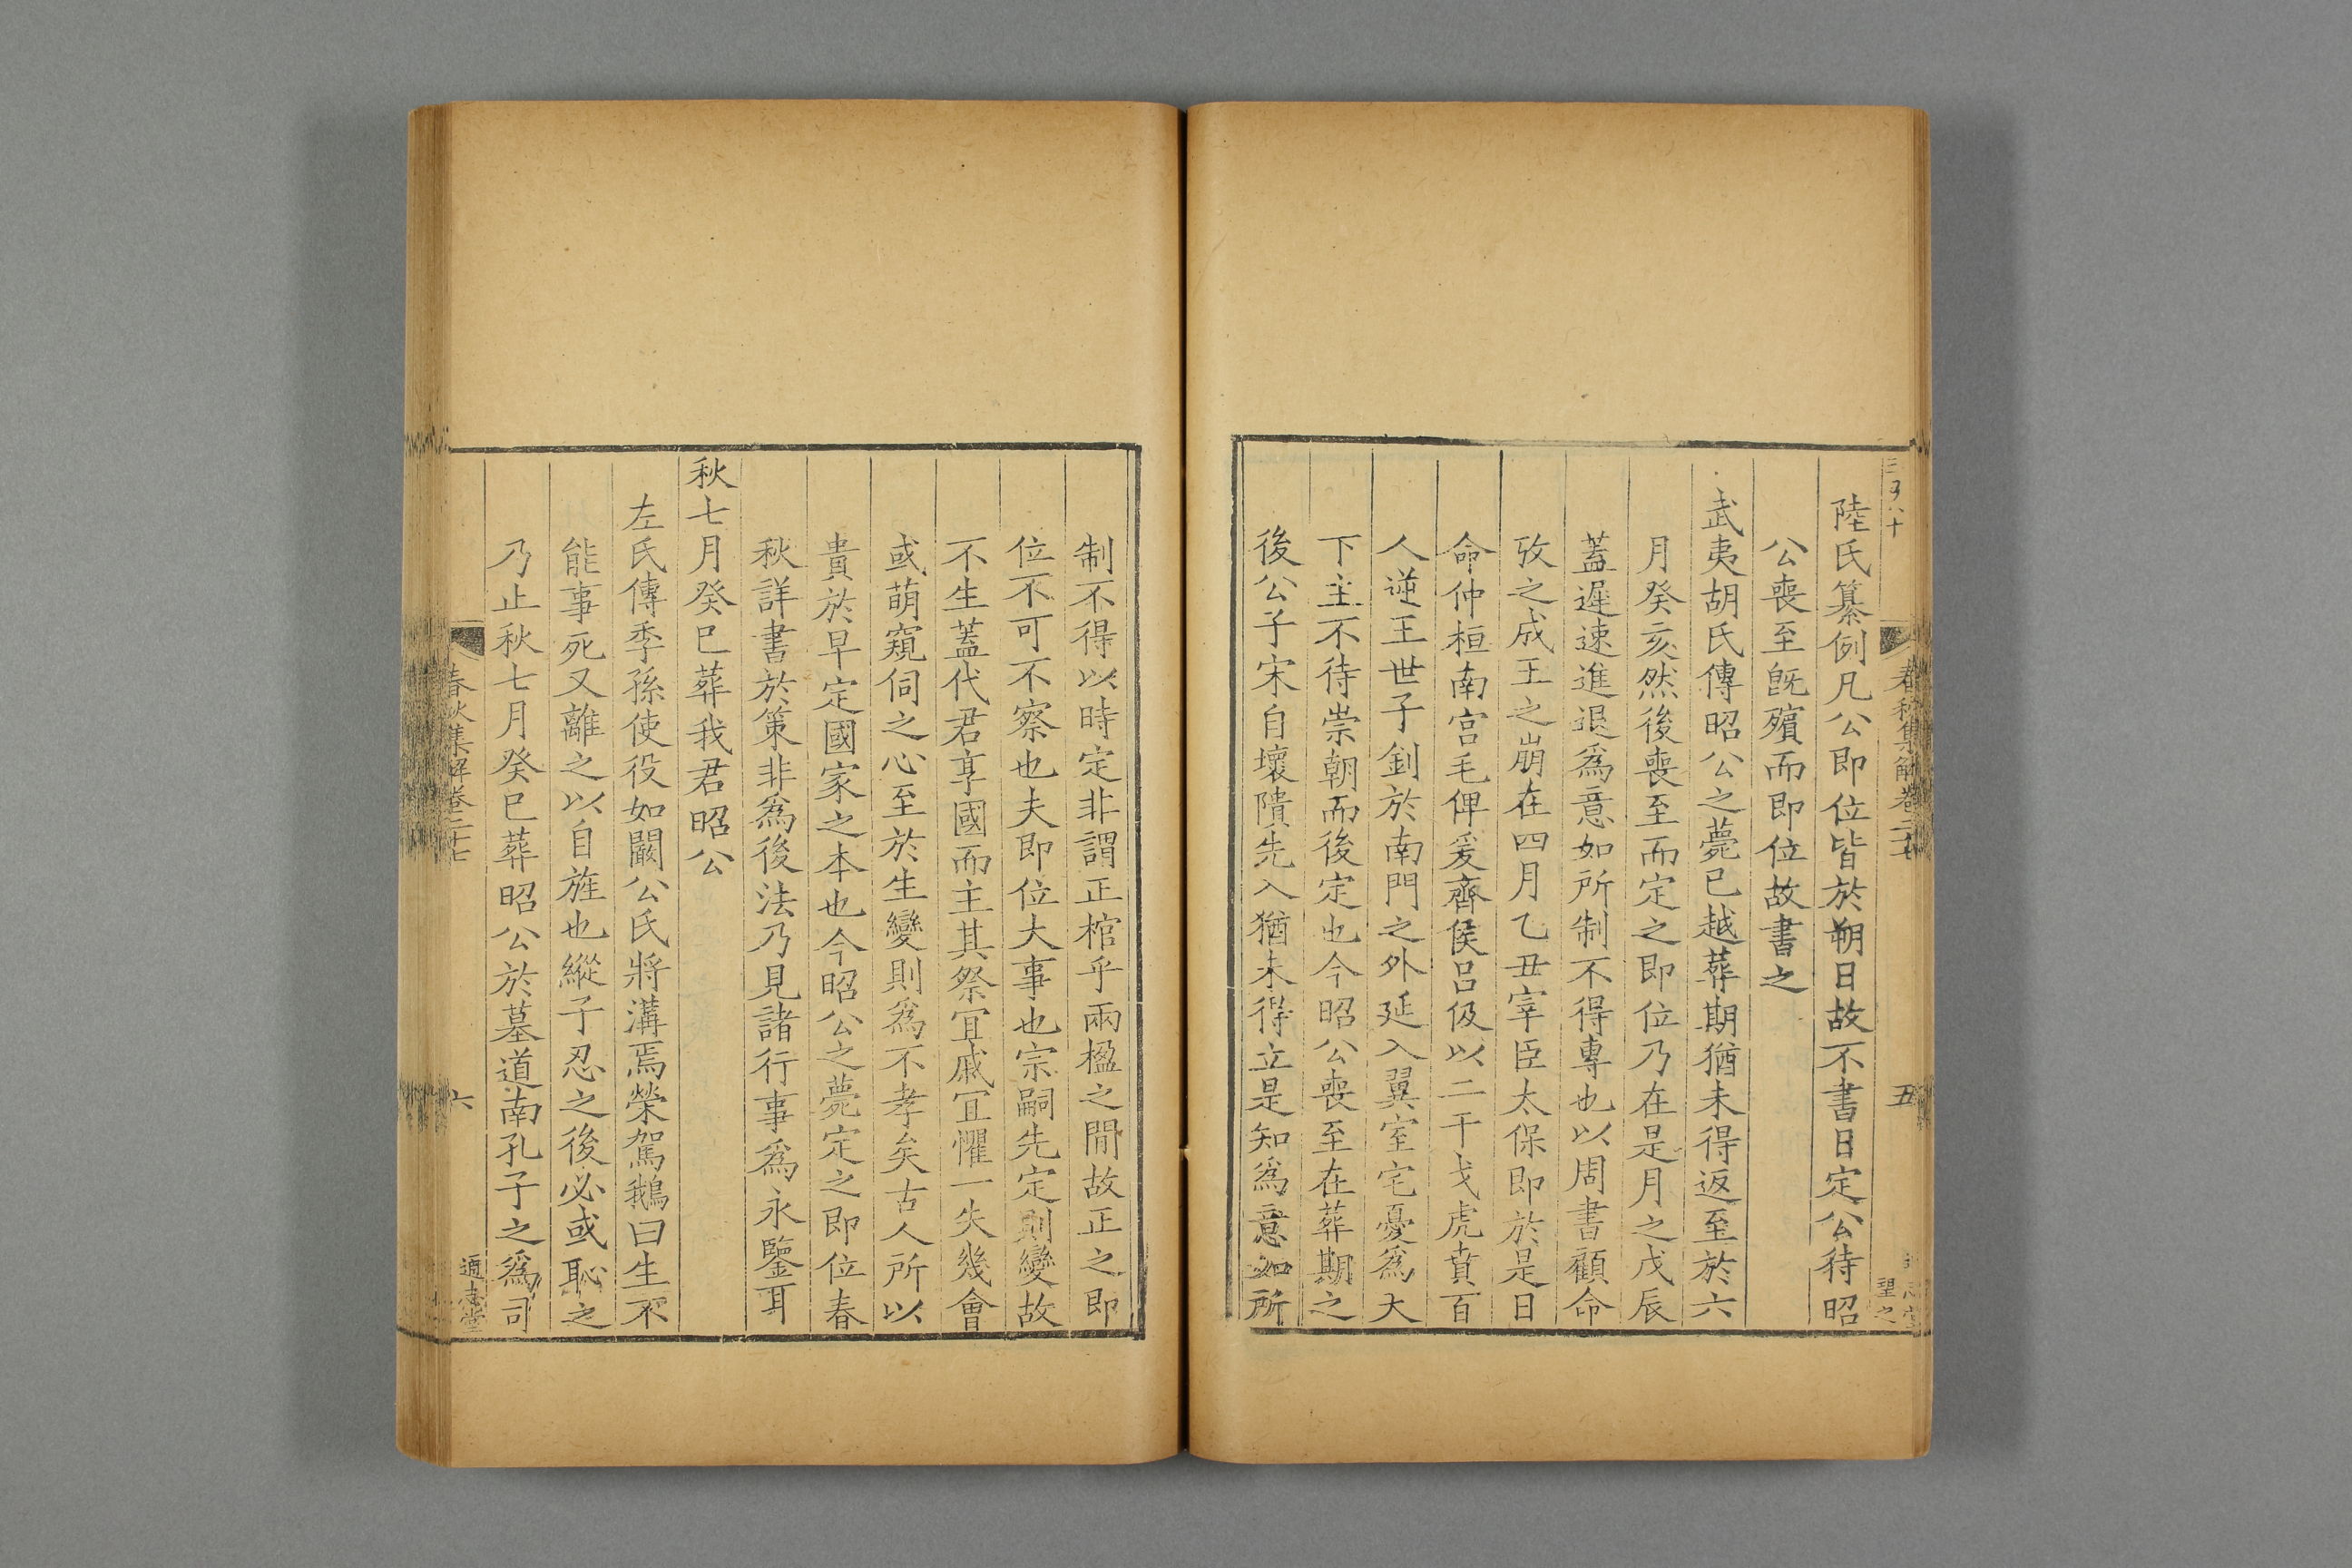 陸氏纂例凡公即位皆於朔日故不書日定公待昭
公喪至旣殯而即位故書之
武夷胡氏傳昭公之薨已越葬期猶未得返至於六
月癸亥然後喪至而定之即位乃在是月之戊辰
蓋遲速進退爲意如所制不得專也以周書顧命
攷之成王之崩在四月乙丑宰臣太保即於是日
命仲桓南宮毛俾爰齊侯呂伋以二干戈虎賁百
人逆王世子釗於南門之外延入翼室宅憂爲大
下主不待崇朝而後定也今昭公喪至在葬期之
後公子宋自壞隤先入猶未得立是知爲意如所
春秋集解卷二十七
五
望之
制不得以時定非謂正棺乎兩楹之閒故正之即
位不可不察也夫即位大事也宗嗣先定則變故
不生蓋代君享國而主其祭宜戚宜懼一失幾會
或萌窺伺之心至於生變則爲不孝矣古人所以
貴於早定國家之本也今昭公之薨定之即位春
秋詳書於策非爲後法乃見諸行事爲永鑒耳
秋七月癸巳葬我君昭公
左氏傳季孫使役如闞公氏將溝焉榮駕鵝曰生不
能事死又離之以自旌也縱子忍之後必或恥之
乃止秋七月癸巳葬昭公於墓道南孔子之爲司
春秋集解卷二十七
六
通志堂